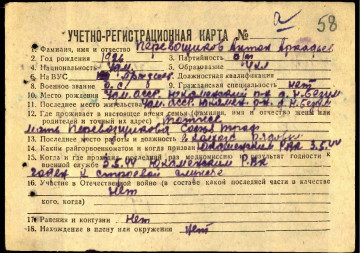 58
УЧЕТНО-РЕГИСТРАЦИОННАЯ КАРТА №
1. Фамилия, имя и отчество Перевощиков Антон
2. Год рождения 1926 3. Партийность б/п
4. Национальность Удм. 5. Образование 4 кл
6. На ВУС 7. Должностная квалификация
8. Военное звание 9. Гражданская специальность нет
10. Место рождения Удм. АССР, Юкаменский р-н, д.
11. Последнее место жительства Удм. АССР Юкамен. р-н
12. Где проживает в настоящее время семья (фамилия, имя и отчество жены или родителей и точный их адрес) то же
мать Перевощикова
13. Последнее место работы и должность
14. Каким райгорвоенкоматом и когда призван Юкаменским РВК 3.5.44
15. Когда и где проходил последний раз медкомиссию и результат годности к
военной службе 3.5.44 Юкаменским РВК
годен к строевой службе
16. Участие в Отечественной войне (в составе какой последней части и в качестве
кого, когда) нет
17. Ранения и контузии нет
18. Нахождение в плену или окружении нет